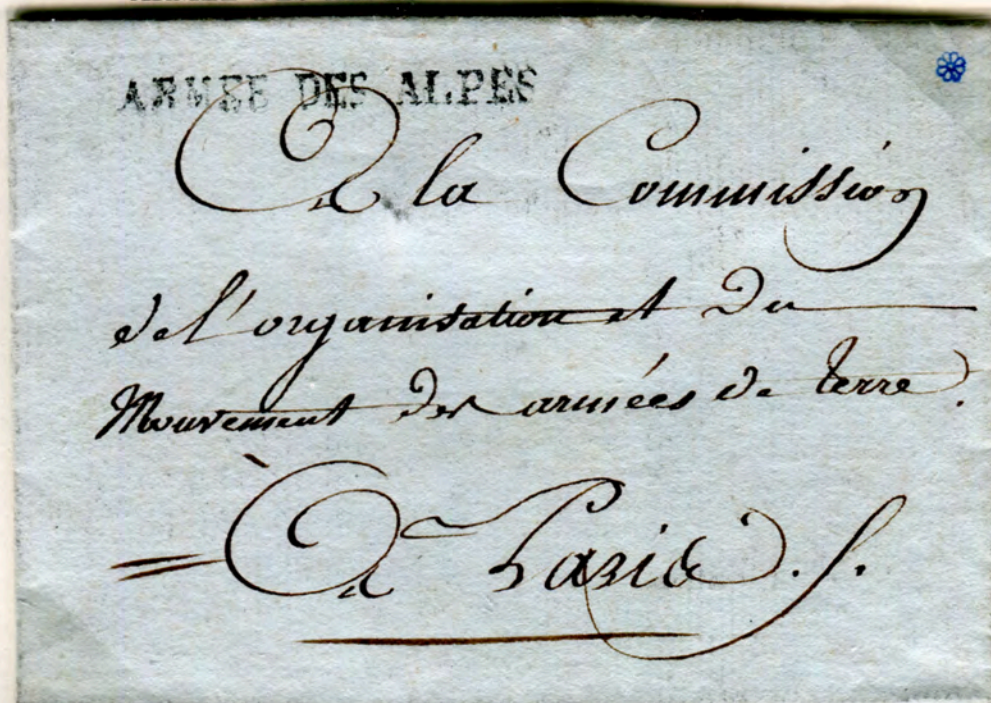 ARMEE DES ALPES
A la Commission
de l'organisation et du
Mouvement des armées de terre.
À Paris.